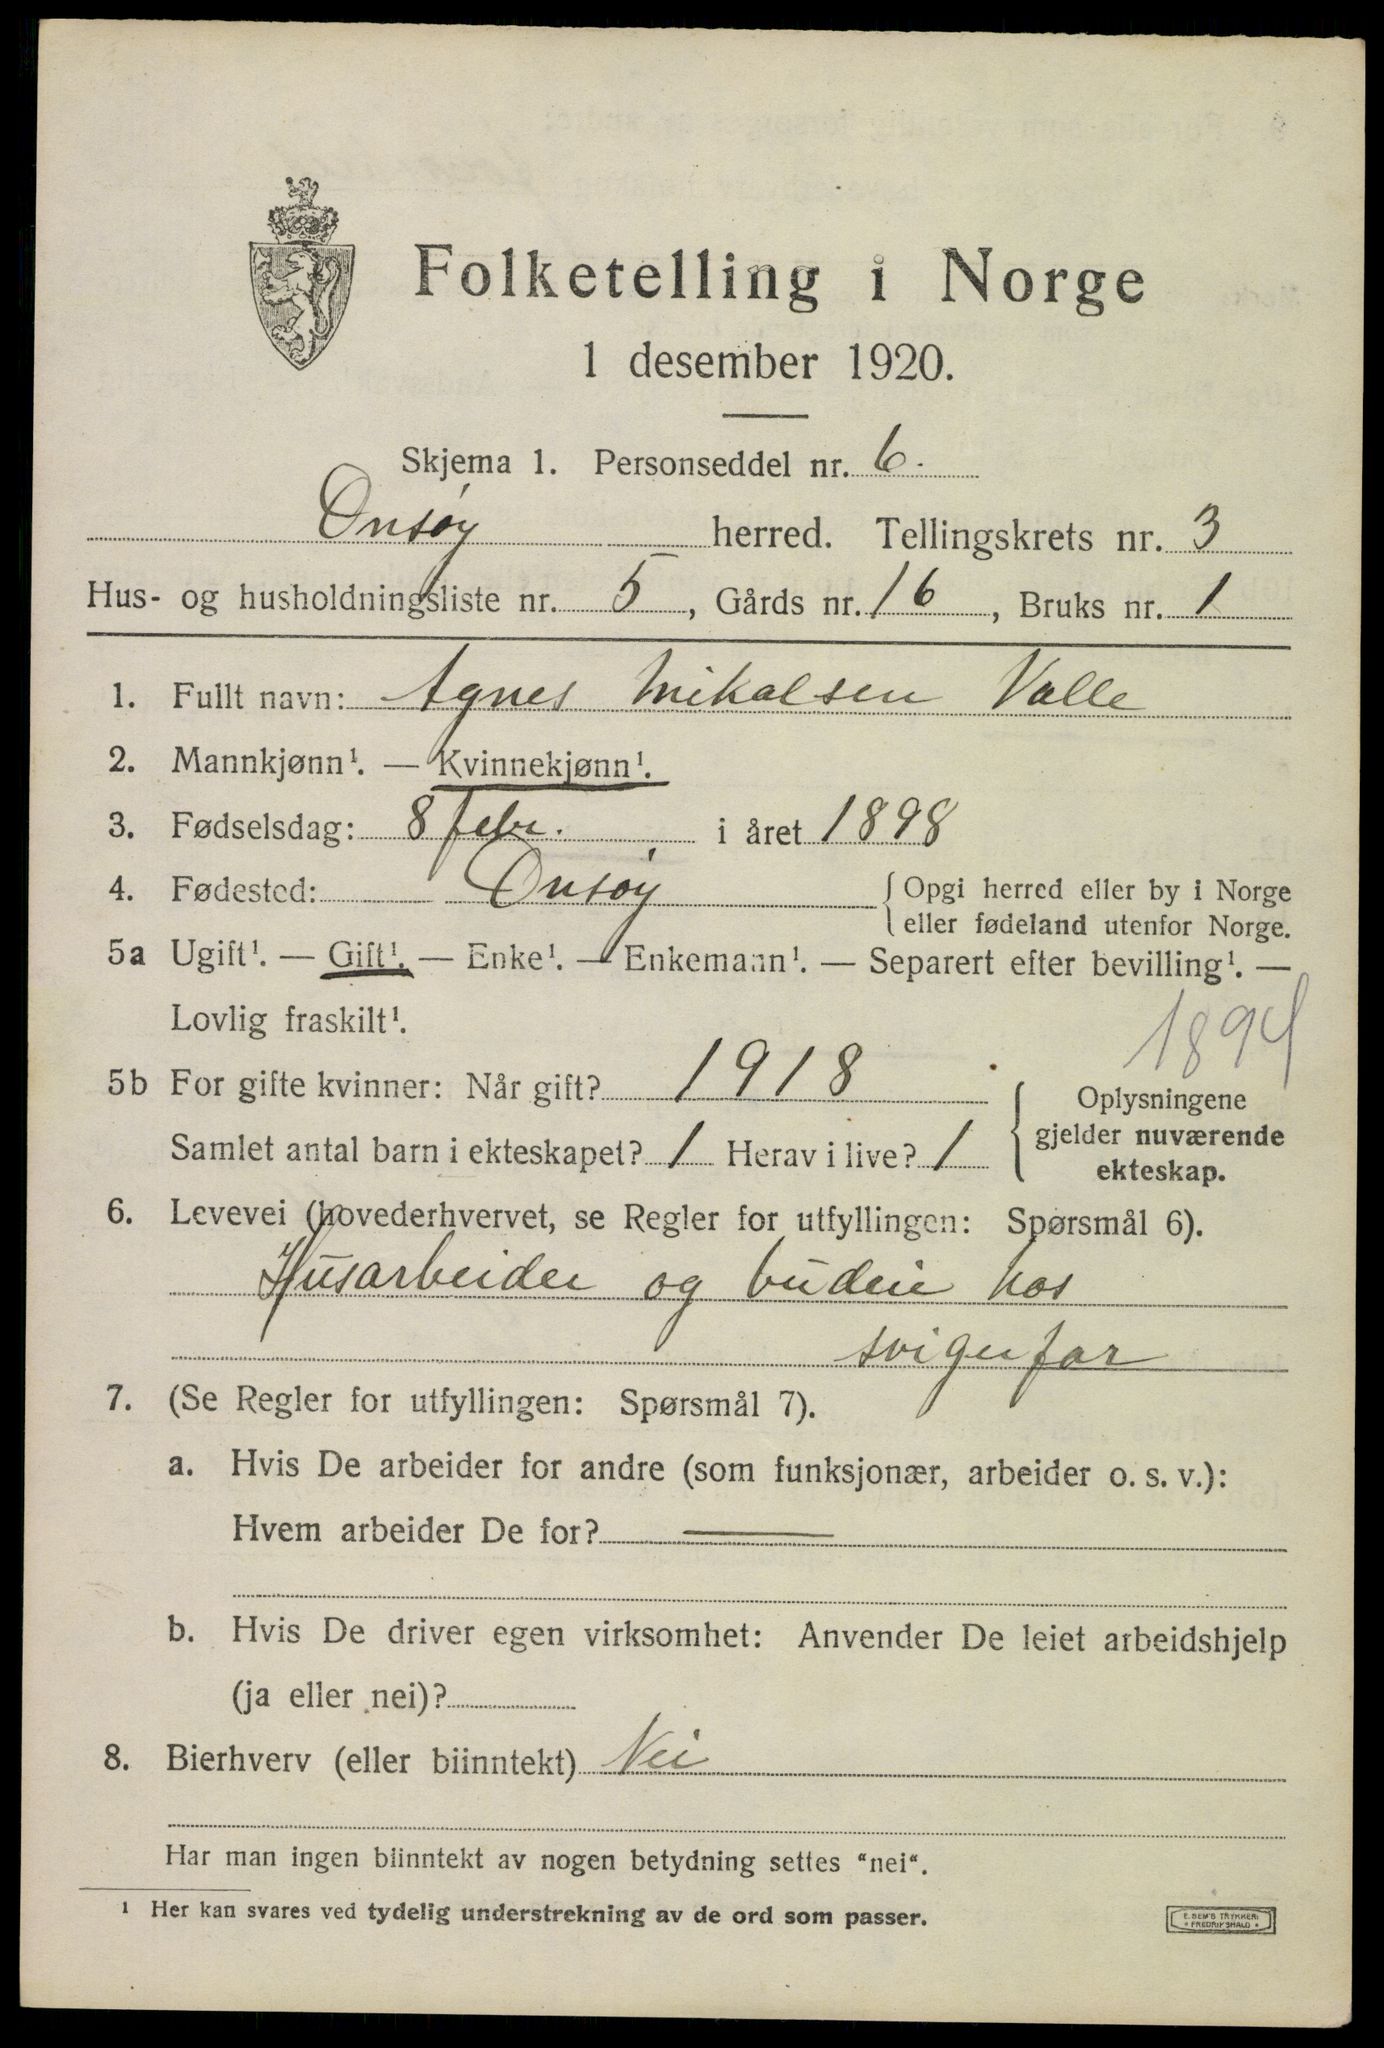 Folketelling i Norge
1 desember 1920.
Skjema 1. Personseddel nr. 6.
Onsøy herred. Tellingskrets nr. 3
Hus- og husholdningsliste nr. 5, Gårds nr. 16, Bruks nr. 1
1. Fullt navn: Agnes Mikalsen Valle
2. Mannkjønn¹. — Kvinnekjønn¹.
3. Fødselsdag: 8 febr. i året 1898
4. Fødested: Onsøy { Opgi herred eller by i Norge
eller fødeland utenfor Norge.
5a Ugift¹. — Gift¹. — Enke¹. — Enkemann¹. — Separert efter bevilling¹. —
Lovlig fraskilt¹.
1894
5b For gifte kvinner: Når gift? 1918
Samlet antal barn i ekteskapet? 1 Herav i live? 1
{ Oplysningene
gjelder nuværende
ekteskap.
6. Levevei (hovederhvervet, se Regler for utfyllingen: Spørsmål 6).
Husarbeider og budeie hos
svigerfar
7. (Se Regler for utfyllingen: Spørsmål 7).
a. Hvis De arbeider for andre (som funksjonær, arbeider o. s. v.):
Hvem arbeider De for? —
b. Hvis De driver egen virksomhet: Anvender De leiet arbeidshjelp
(ja eller nei)?
8. Bierhverv (eller biinntekt) Nei
Har man ingen biinntekt av nogen betydning settes “nei“.
¹ Her kan svares ved tydelig understrekning av de ord som passer.
E. SEM'S TRYKKERI
* FREDRIKSHALD *